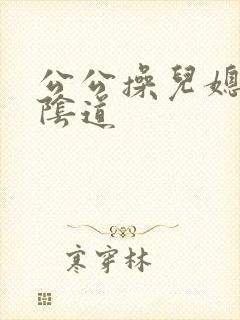 公公操兒媳
陰道
寒穿林